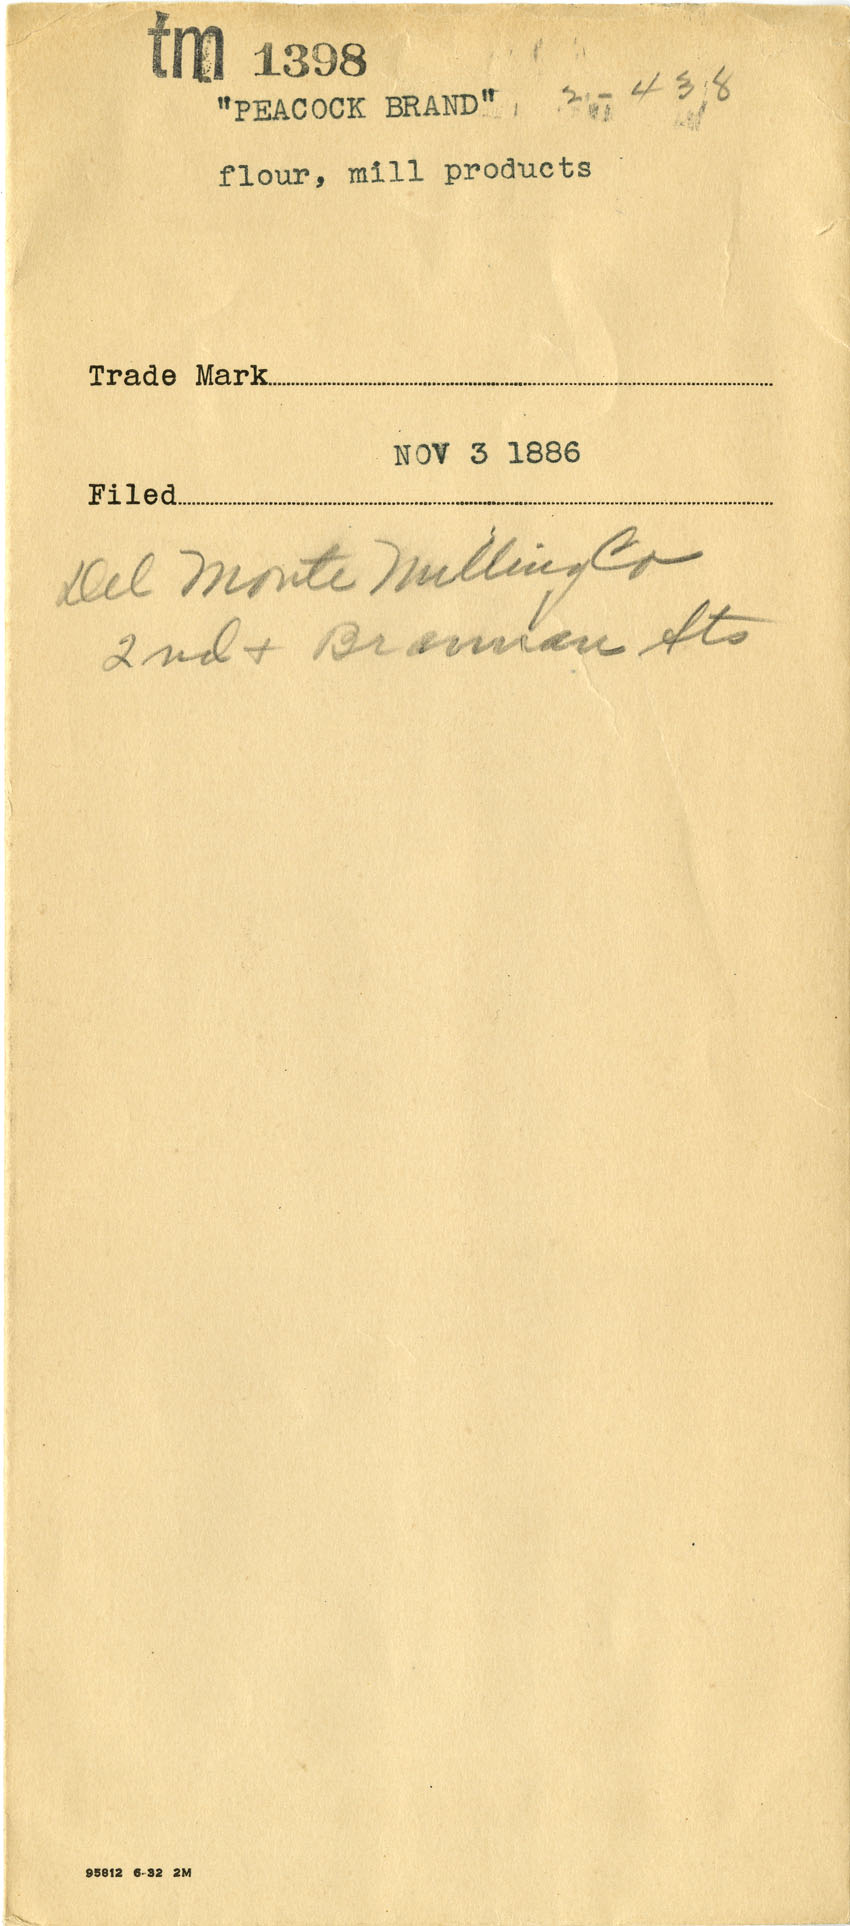 tm 1398
"PEACOCK BRAND"
flour, mill products
Trade Mark
NOV 3 1886
Filed
Del Monte Milling Co
2nd + Brannan Sts
95812 6-32 2M